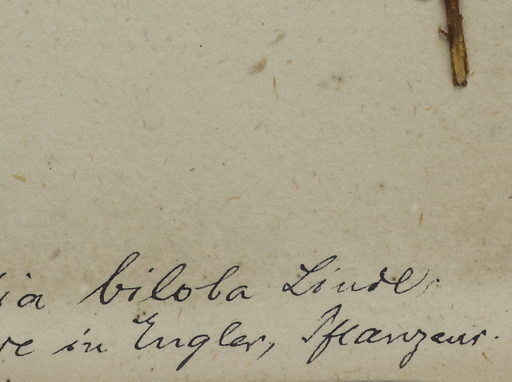 ia biloba Lindl.
re in Engler, Pflanzenr.